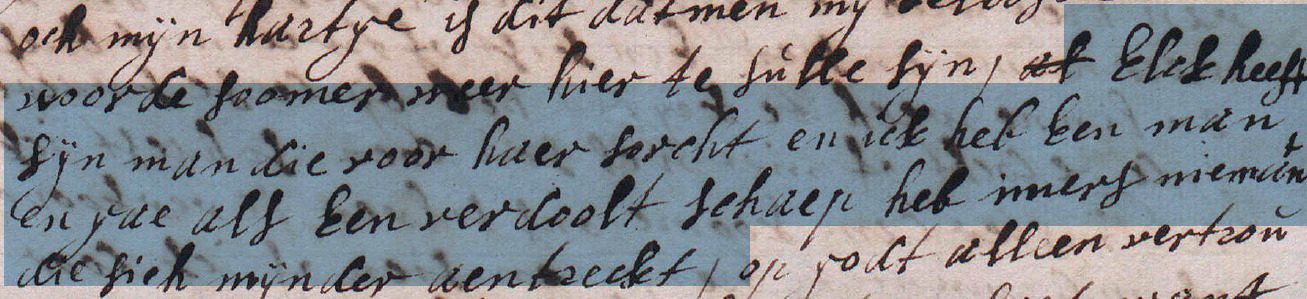 och mÿn hartye is dit datmen mÿ
woorde soomer weer hier te sulle sÿn, Elck heeft
sÿn man die voor haer sorcht en ick heb Een man
en gae als Een verdoolt schaep heb imers niemant
die sich mÿnder aentreckt, op godt alleen vertrou